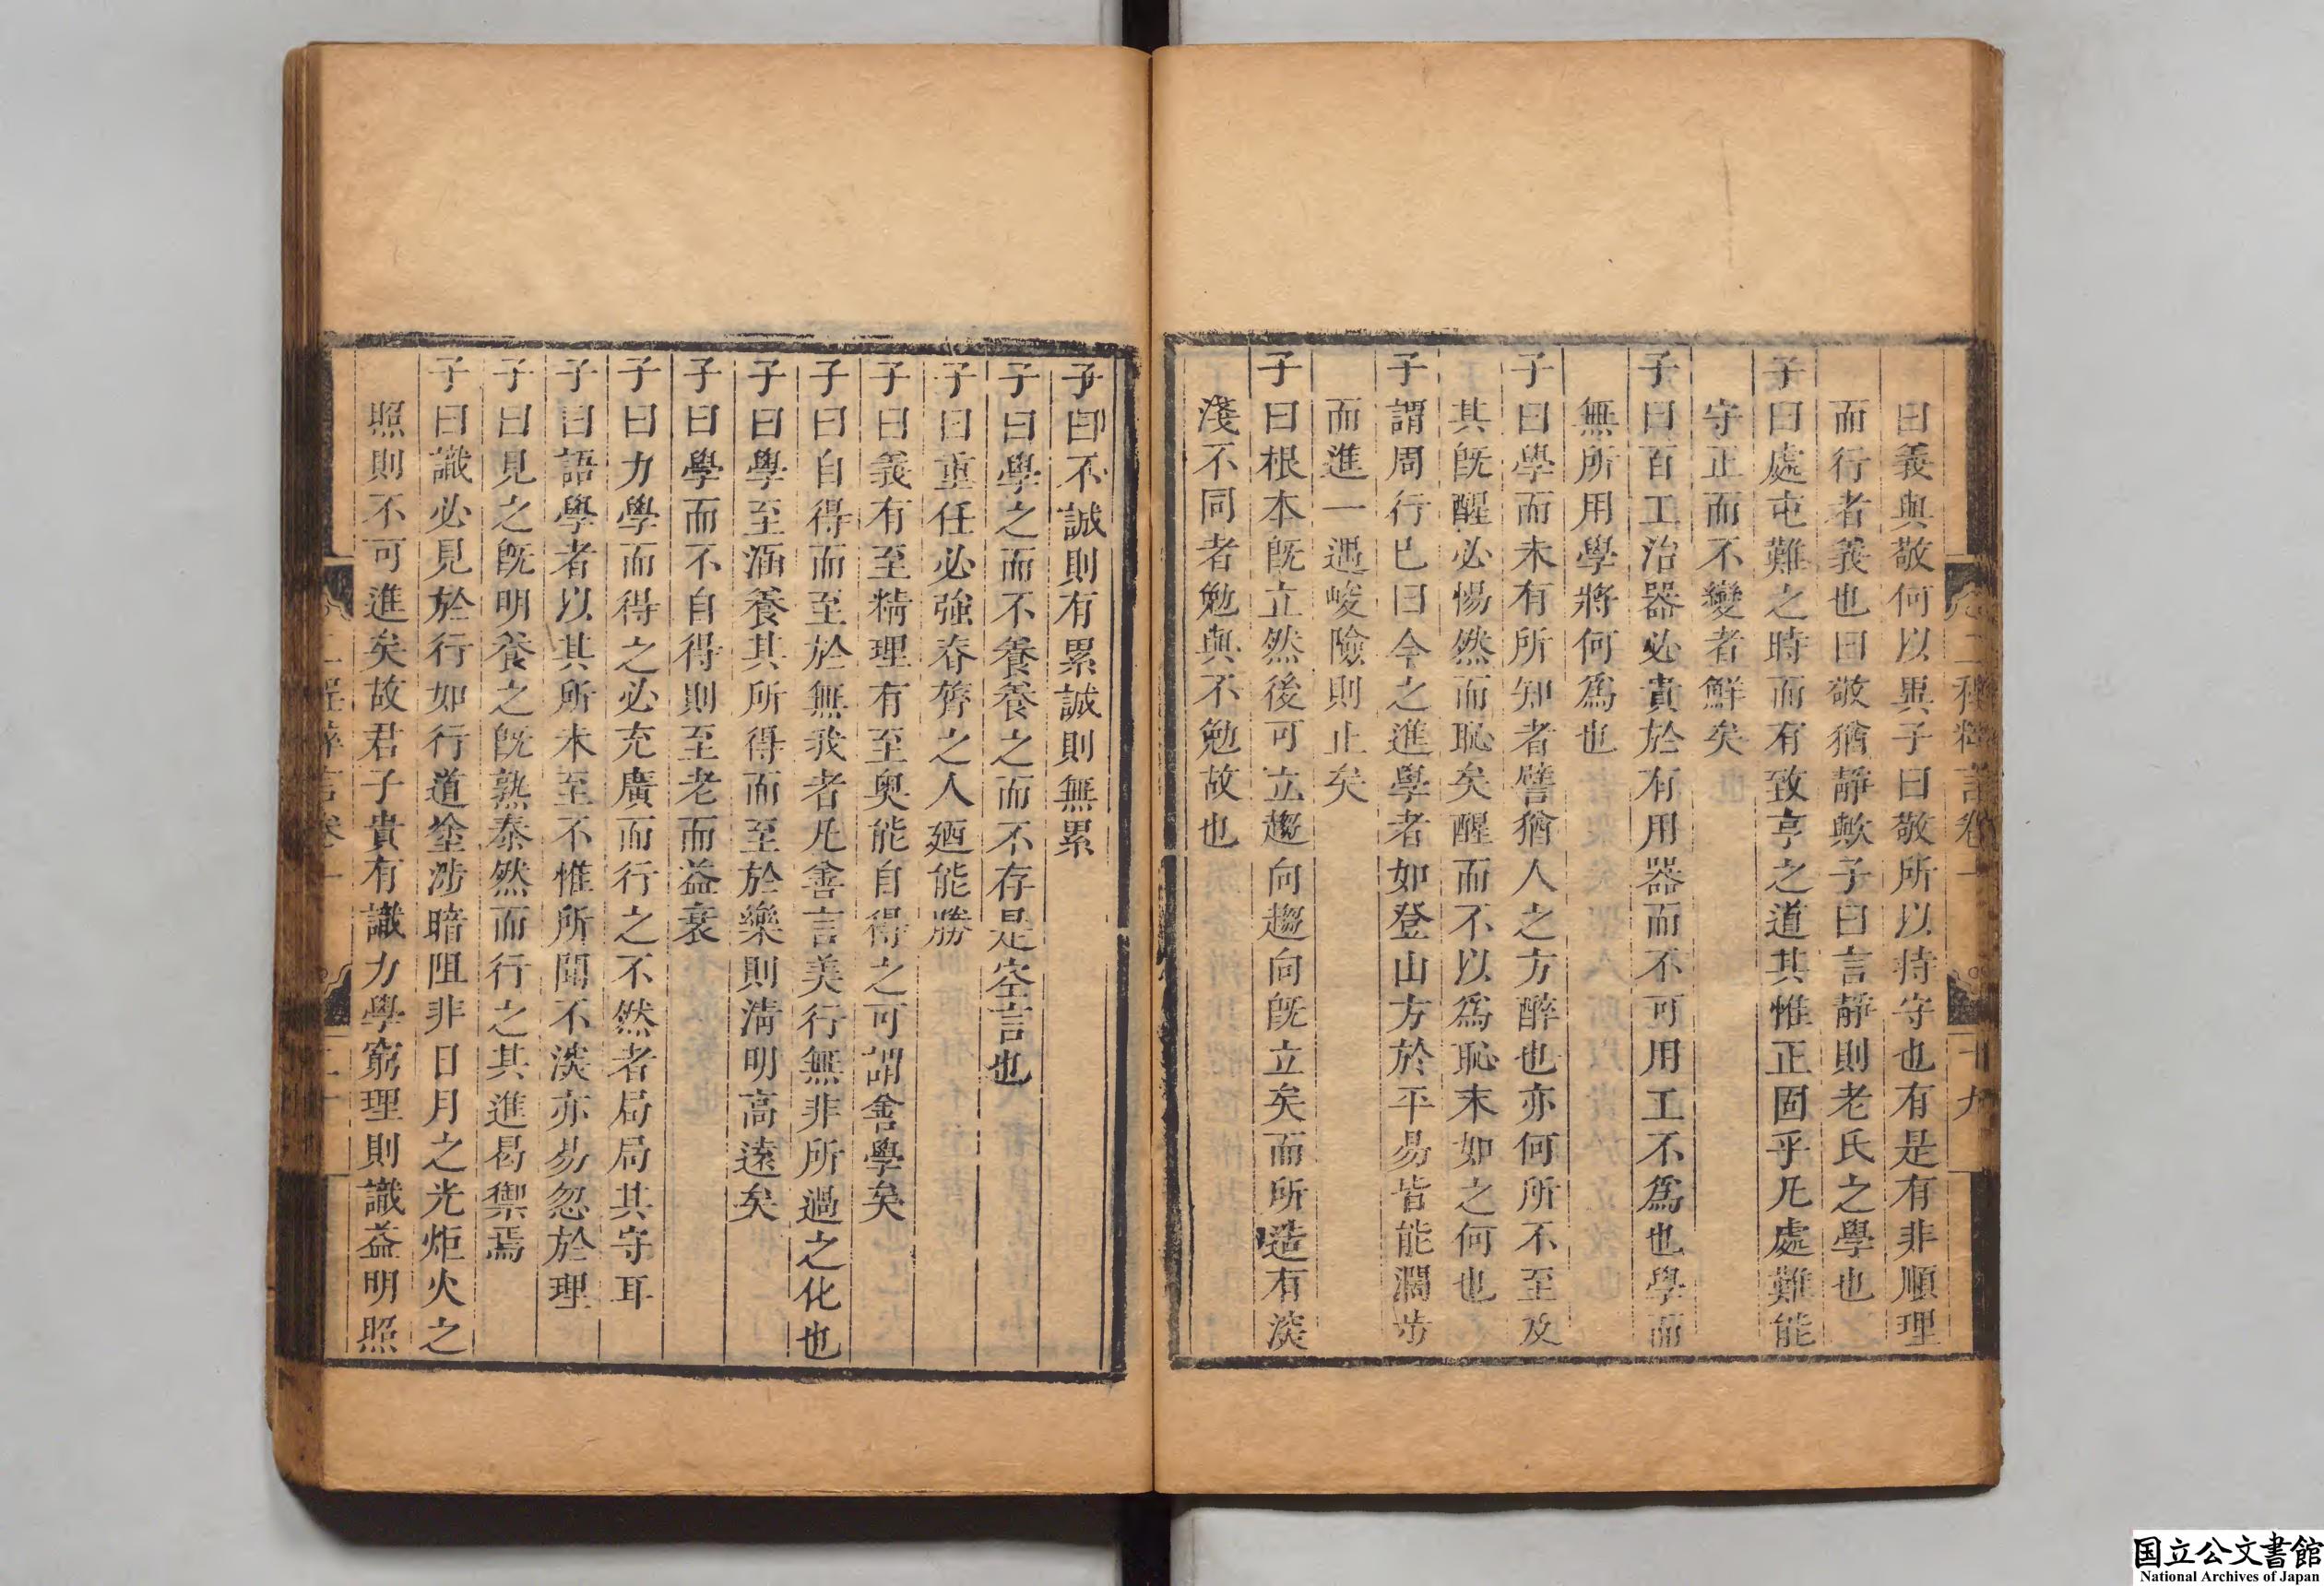 二程粹言卷一
十九
曰義與敬何以異子曰敬所以持守也有是有非順理
而行者義也曰敬猶靜歟子曰言靜則老氏之學也
子曰處屯難之時而有致亨之道其惟正固乎凡處難能
守正而不變者鮮矣
子曰百工治器必貴於有用器而不可用工不爲也學而
無所用學將何爲也
子曰學而未有所知者譬猶人之方醉也亦何所不至及
其旣醒必惕然而恥矣醒而不以爲恥末如之何也
子謂周行已曰今之進學者如登山方於平易皆能濶步
而進一遇峻險則止矣
子曰根本旣立然後可立趨向趨向旣立矣而所造有淡
淺不同者勉與不勉故也
子曰不誠則有累誠則無累
子曰學之而不養養之而不存是空言也
子曰重任必強脊膂之人廼能勝
子曰義有至精理有至奧能自得之可謂善學矣
子曰自得而至於無我者凡善言美行無非所過之化也
子曰學至涵養其所得而至於樂則淸明高遠矣
子曰學而不自得則至老而益衰
子曰力學而得之必充廣而行之不然者局局其守耳
子曰語學者以其所未至不惟所聞不淡亦易忽於理
子曰見之旣明養之旣熟泰然而行之其進曷禦焉
子曰識必見於行如行道塗涉暗阻非日月之光炬火之
照則不可進矣故君子貴有識力學窮理則識益明照
二程粹言卷一
二十
国立公文書館
National Archives of Japan